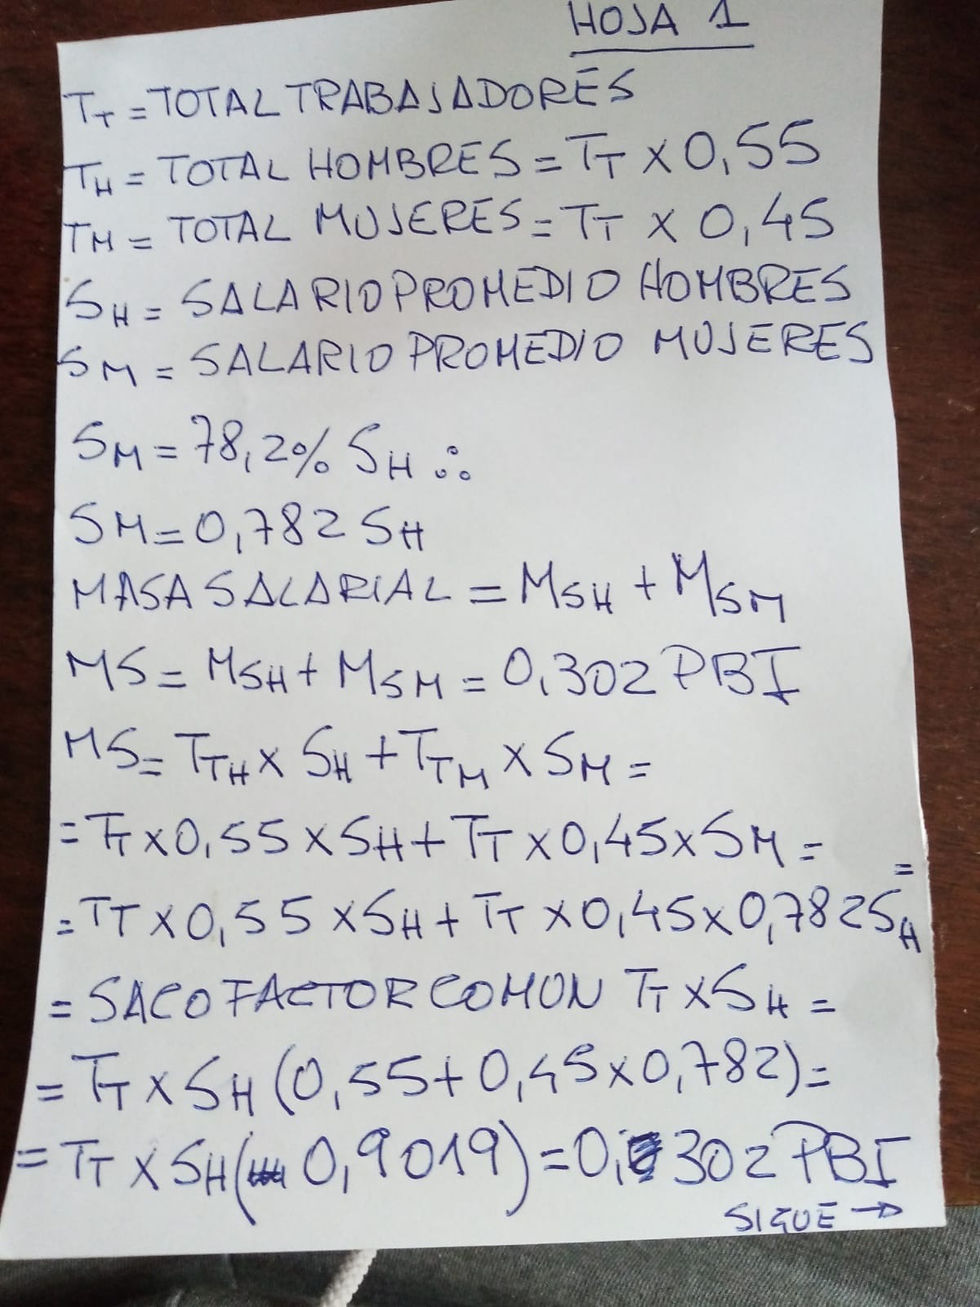 HOJA 1
TT = TOTAL TRABAJADORES
TH = TOTAL HOMBRES = TT X 0,55
TM = TOTAL MUJERES = TT X 0,45
SH = SALARIO PROMEDIO HOMBRES
SM = SALARIO PROMEDIO MUJERES
SM = 78,2% SH ∴
SM = 0,782 SH
MASA SALARIAL = MSH + MSM
MS = MSH + MSM = 0,302 PBI
MS = TTH X SH + TTM X SM =
= TT X 0,55 X SH + TT X 0,45 X SM =
= TT X 0,55 X SH + TT X 0,45 X 0,782 SH =
= SACO FACTOR COMUN TT X SH =
= TT X SH (0,55 + 0,45 X 0,782) =
= TT X SH (0,9019) = 0,302 PBI
SIGUE →